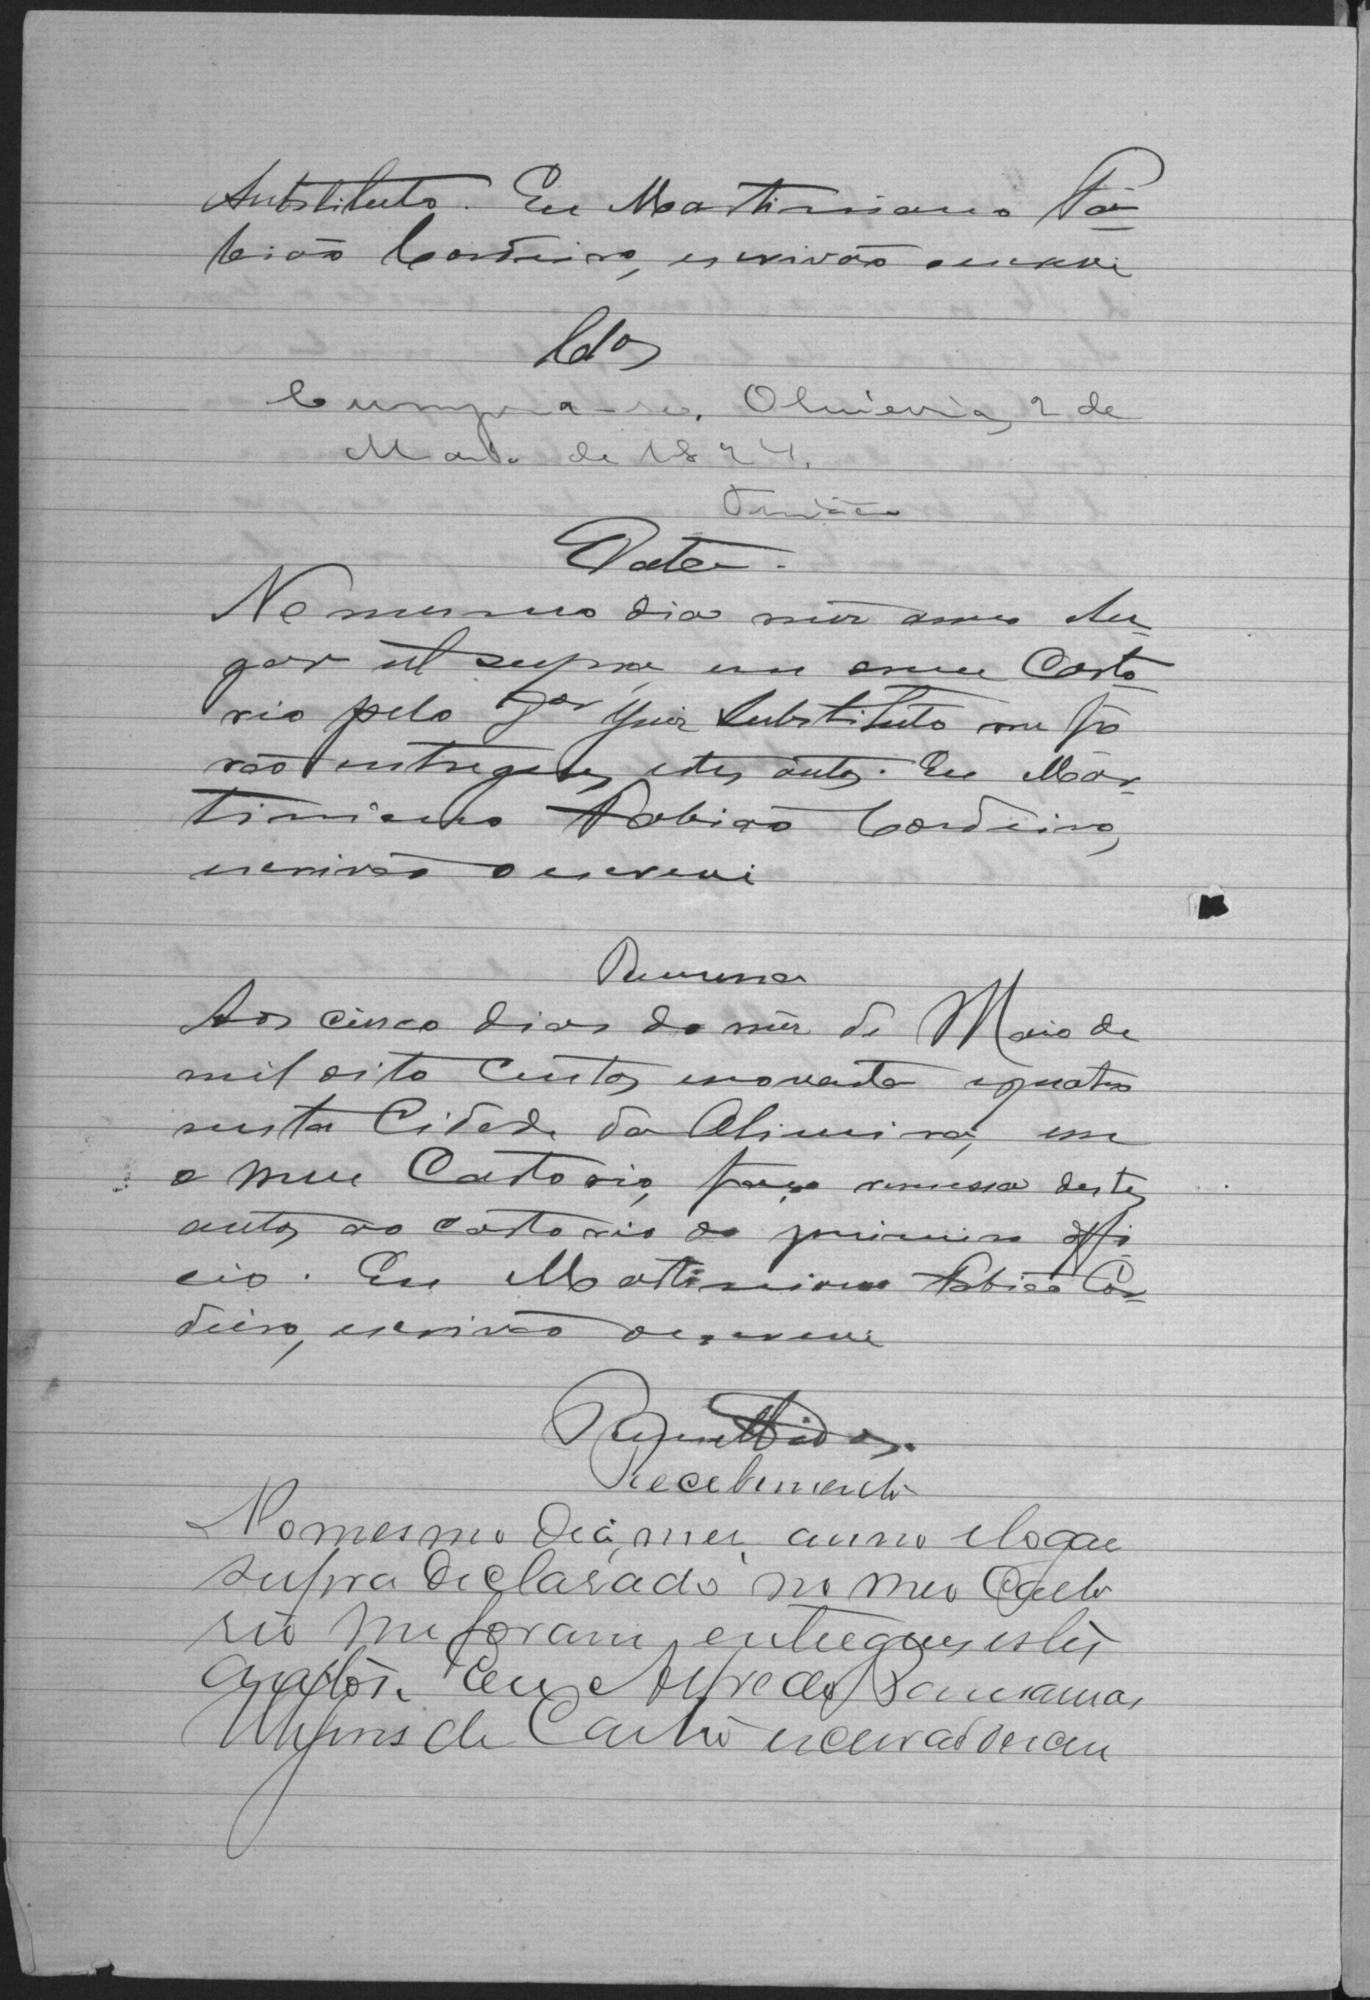 Substituto. Eu Martiniano Fa-
bião Cordeiro, escrivão o escrevi
Clos
Cumpra-se. Oliveira, 2 de
Maio de 1894.
Data.
No mesmo dia mez anno e lu-
gar ut supra, em o meu Carto-
rio pelo Juiz Substituto me fo
rão entregues estes autos. Eu Mar-
tiniano Fabião Cordeiro,
escrivão o escrevi
Remessa
Aos cinco dias do mez de Maio de
mil oito centos e noventa e quatro
nesta Cidade da Oliveira, em
o meu Cartorio, faço remessa destes
autos ao cartorio do primeiro offi
cio. Eu Martiniano Fabião Cor-
deiro, escrivão o escrevi
Remettidos.
Recebimento
No mesmo dia, mez, anno e logar
supra declarado no meu Carto
rio me foram entregues estes
autos. Eu Alfredo
de Castro escrivão o escrevi